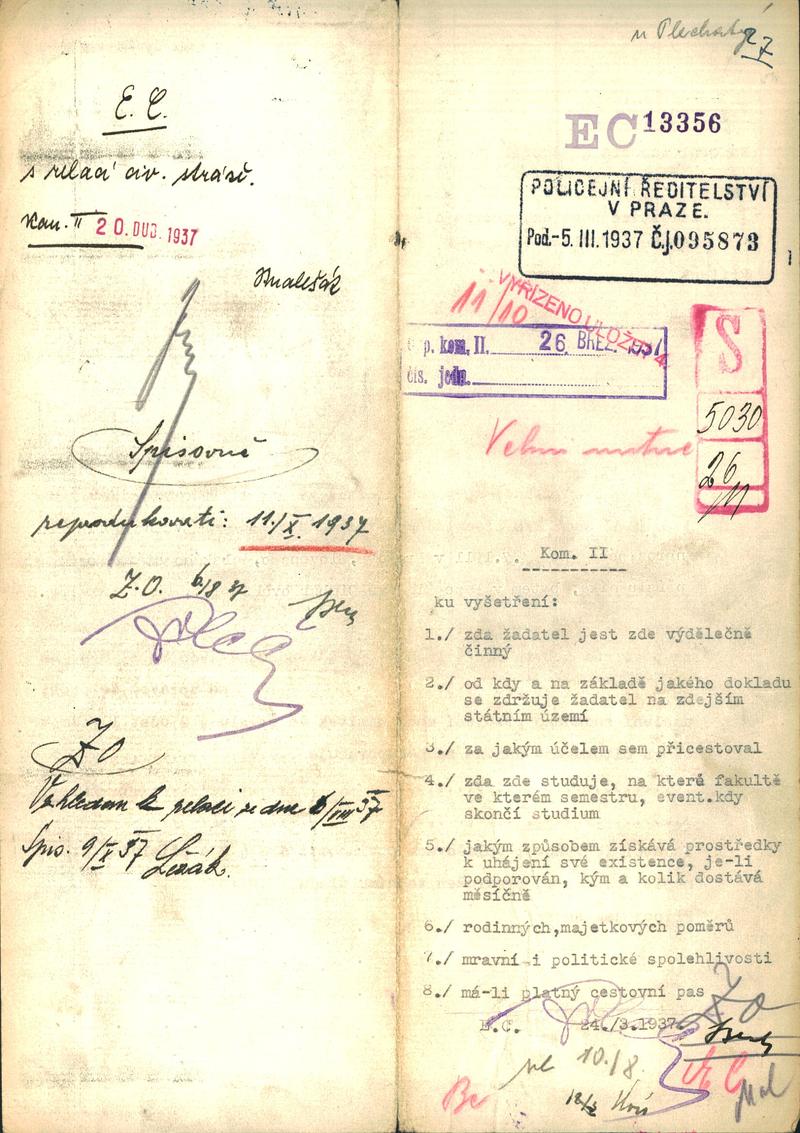 E. C.
s relací civ. stráže.
Kan. II 20. DUB. 1937
Spisovně
reprodukovati: 11./X. 1937
Z.O. 6/8 37
ŽO
Vzhledem k relaci ze dne 6/VIII 37
Spis. 9/X 37
27
EC 13356
POLICEJNÍ ŘEDITELSTVÍ
V PRAZE.
Pod.-5. III. 1937 Č.j.095873
VYŘÍZENO ULOŽENO
11/10
p. kom. II. 26. BŘEZ. 1937
čís. jedn.
S
5030
26
Velmi nutné
Kom. II
ku vyšetření:
1./ zda žadatel jest zde výdělečně
činný
2./ od kdy a na základě jakého dokladu
se zdržuje žadatel na zdejším
státním území
3./ za jakým účelem sem přicestoval
4./ zda zde studuje, na které fakultě
ve kterém semestru, event.kdy
skončí studium
5./ jakým způsobem získává prostředky
k uhájení své existence, je-li
podporován, kým a kolik dostává
měsíčně
6./ rodinných,majetkových poměrů
7./ mravní i politické spolehlivosti
8./ má-li platný cestovní pas
E.C. 24./3.1937.
10./8.